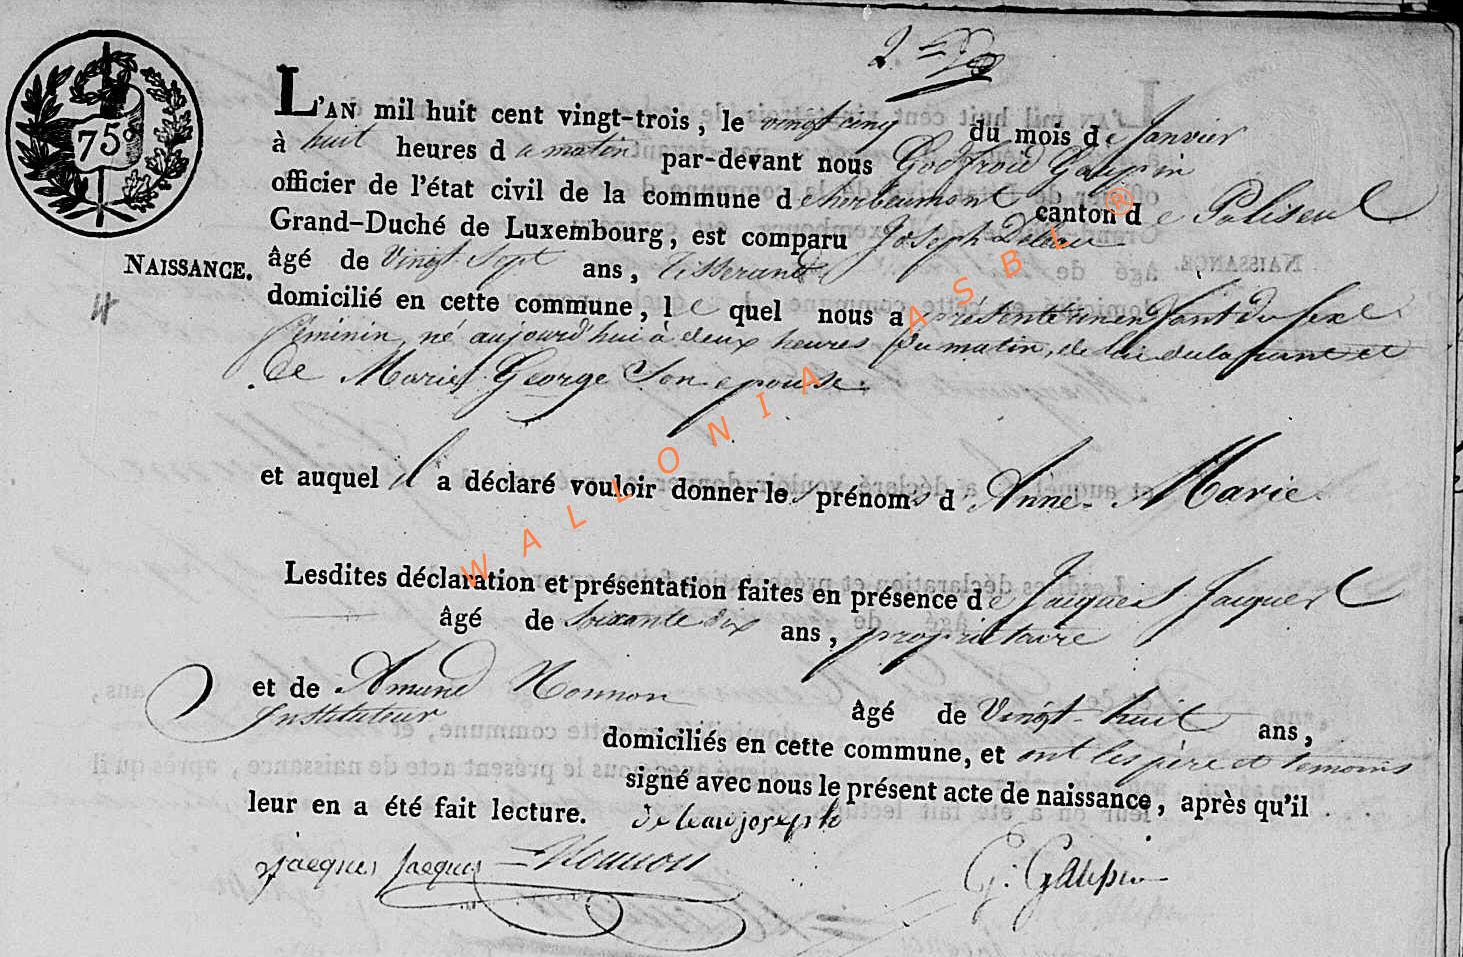 75
L'AN mil huit cent vingt-trois, le vingt cinq du mois de Janvier
à huit heures du matin par-devant nous Godfroid Gaupin
officier de l'état civil de la commune d'herbeumont canton de Paliseul
Grand-Duché de Luxembourg, est comparu Joseph Deleau
NAISSANCE.
âgé de Vingt Sept ans, Tisserand
4
domicilié en cette commune, le quel nous a présenté un enfant du sexe
féminin, né aujourd'hui à deux heures du matin, de lui declarant et
de Marie George Son epouse.
et auquel il a déclaré vouloir donner les prénoms d'Anne-Marie
Lesdites déclaration et présentation faites en présence de Jacques Jacques
âgé de soixante dix ans, propriétaire
et de Amand Nonnon âgé de Vingt-huit ans,
Instituteur domiciliés en cette commune, et ont les père et temoins
signé avec nous le présent acte de naissance, après qu'il
leur en a été fait lecture. deleau joseph
jacques jacques Nonnon G. Gaupin
WALLONIA ASBL ®